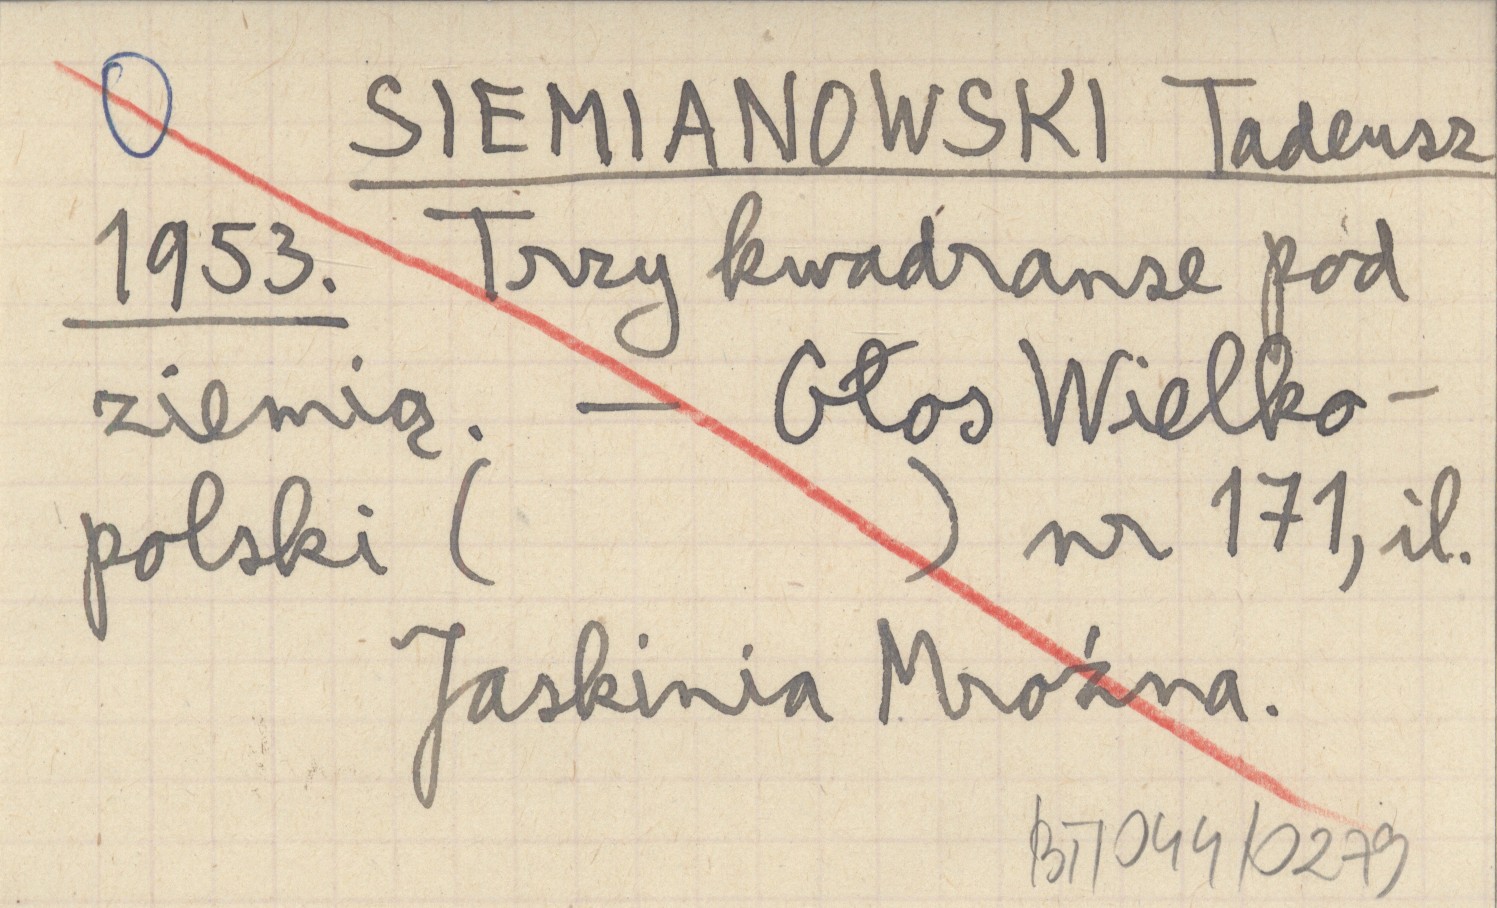 SIEMIANOWSKI Tadeusz
1953. Trzy kwadranse pod
ziemią. — Głos Wielko-
polski ( ) nr 171, il.
Jaskinia Mroźna.
BT/044/0279